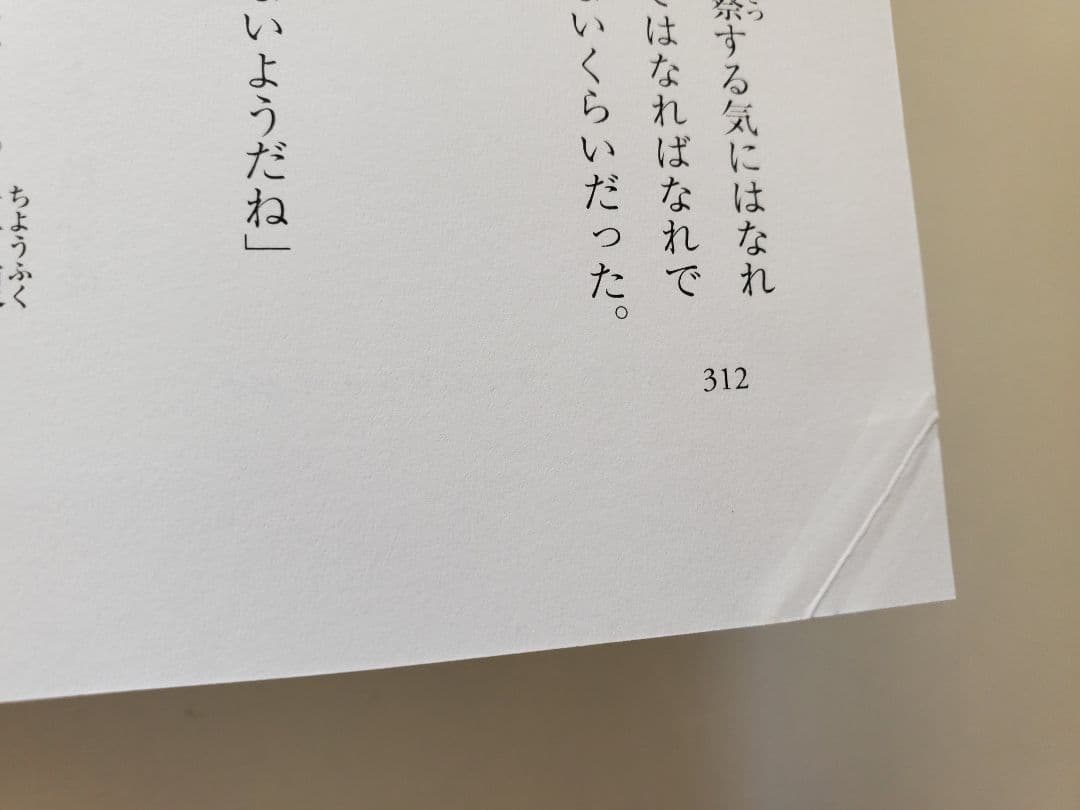 察する気にはなれ
はなればなれで
いくらいだった。
いようだね」
ちょうふく
312